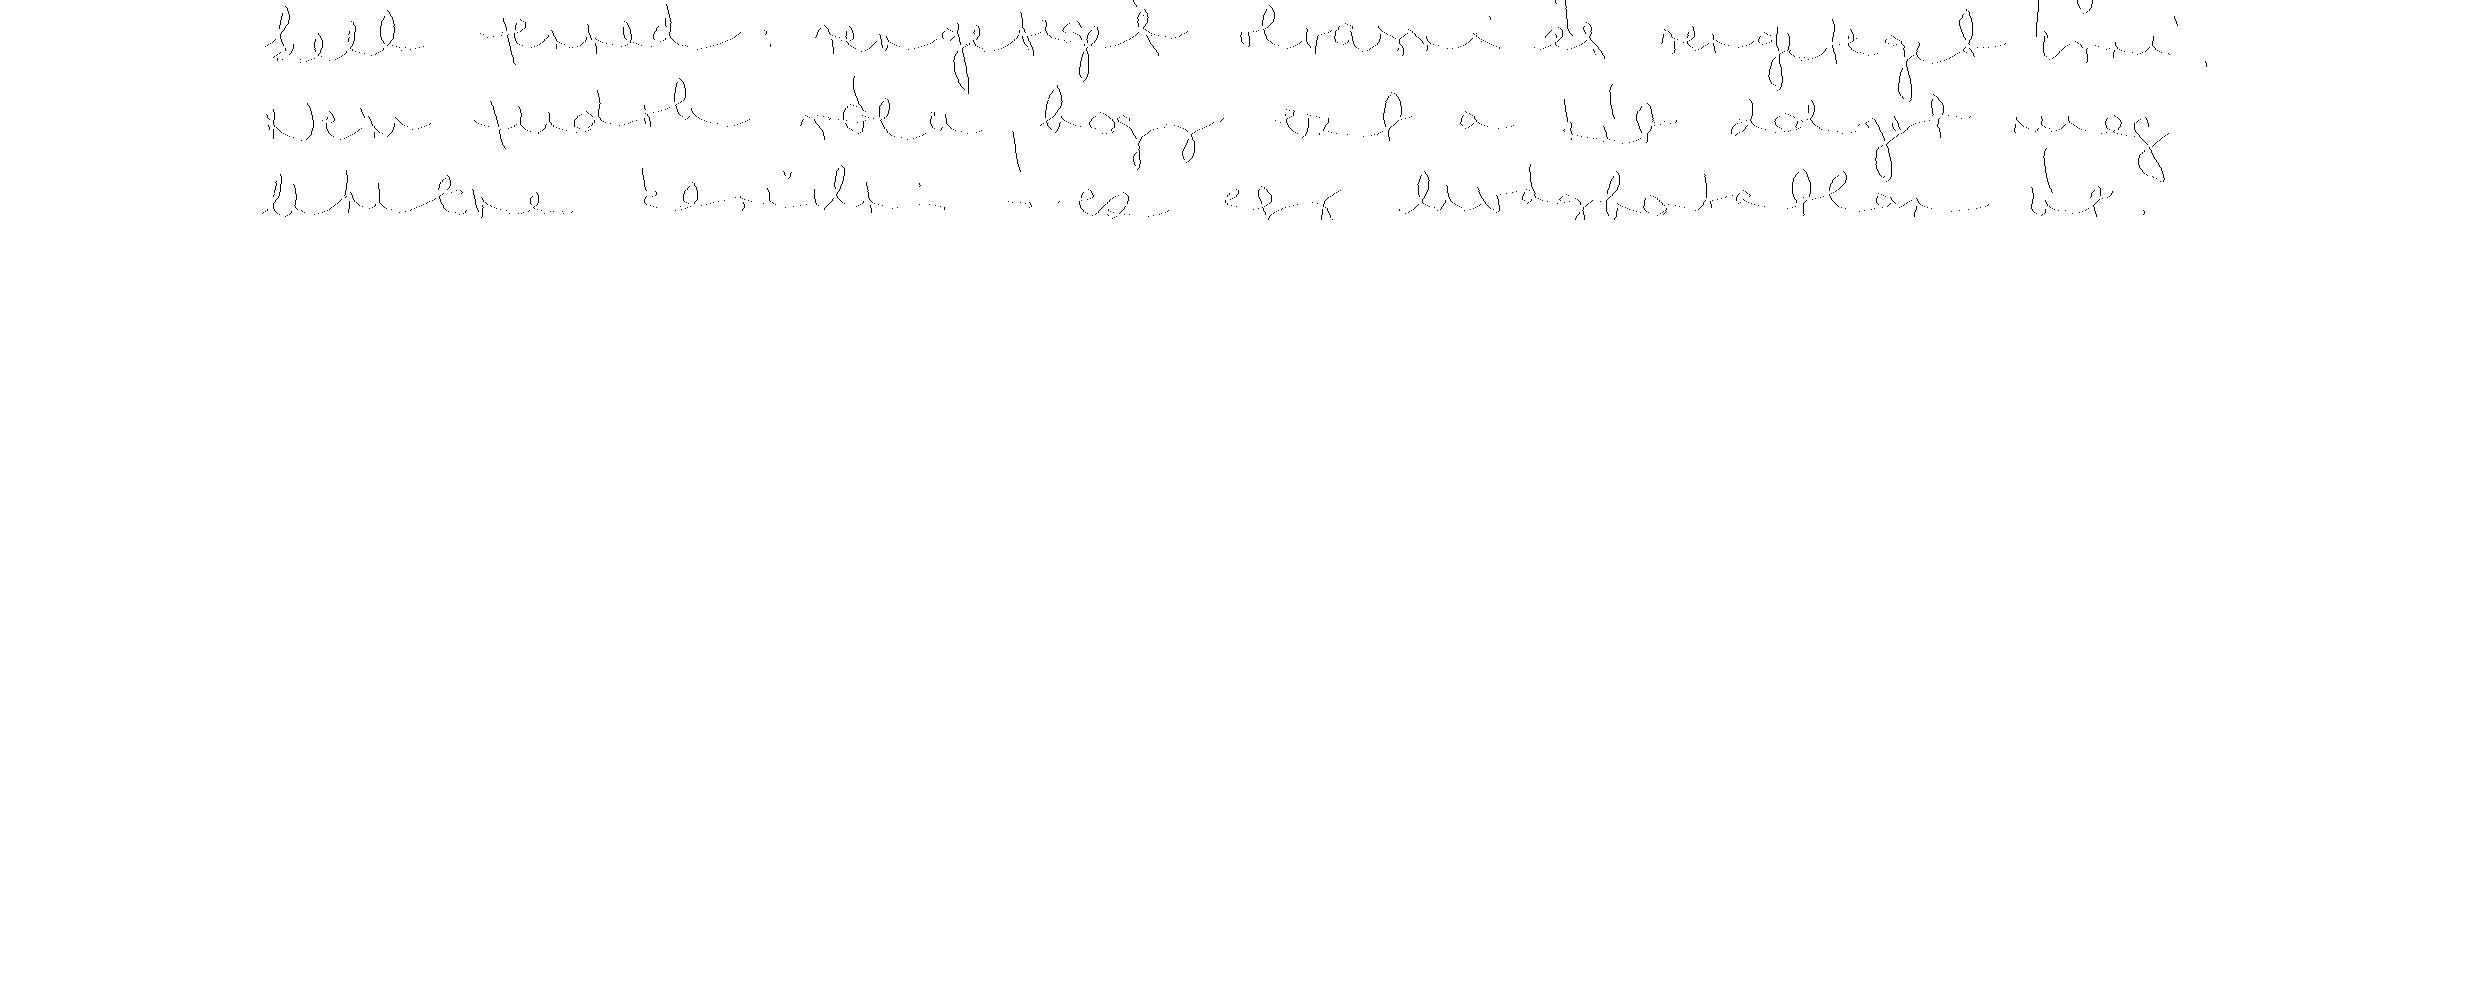 kell tenned: rengeteget olvasni és rengeteget írni.
Nem tudok róla, hogy ezt a két dolgot meg
lehetne kerülni